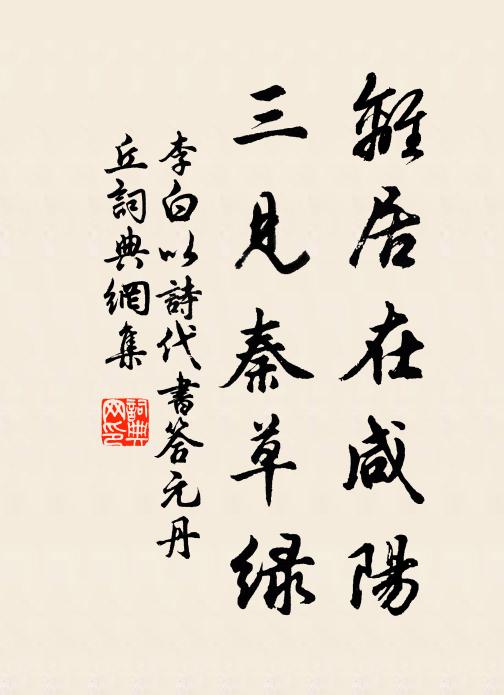 離居在咸陽
三見秦草綠
李白以詩代書答元丹
丘詞典網集
詞典
网印